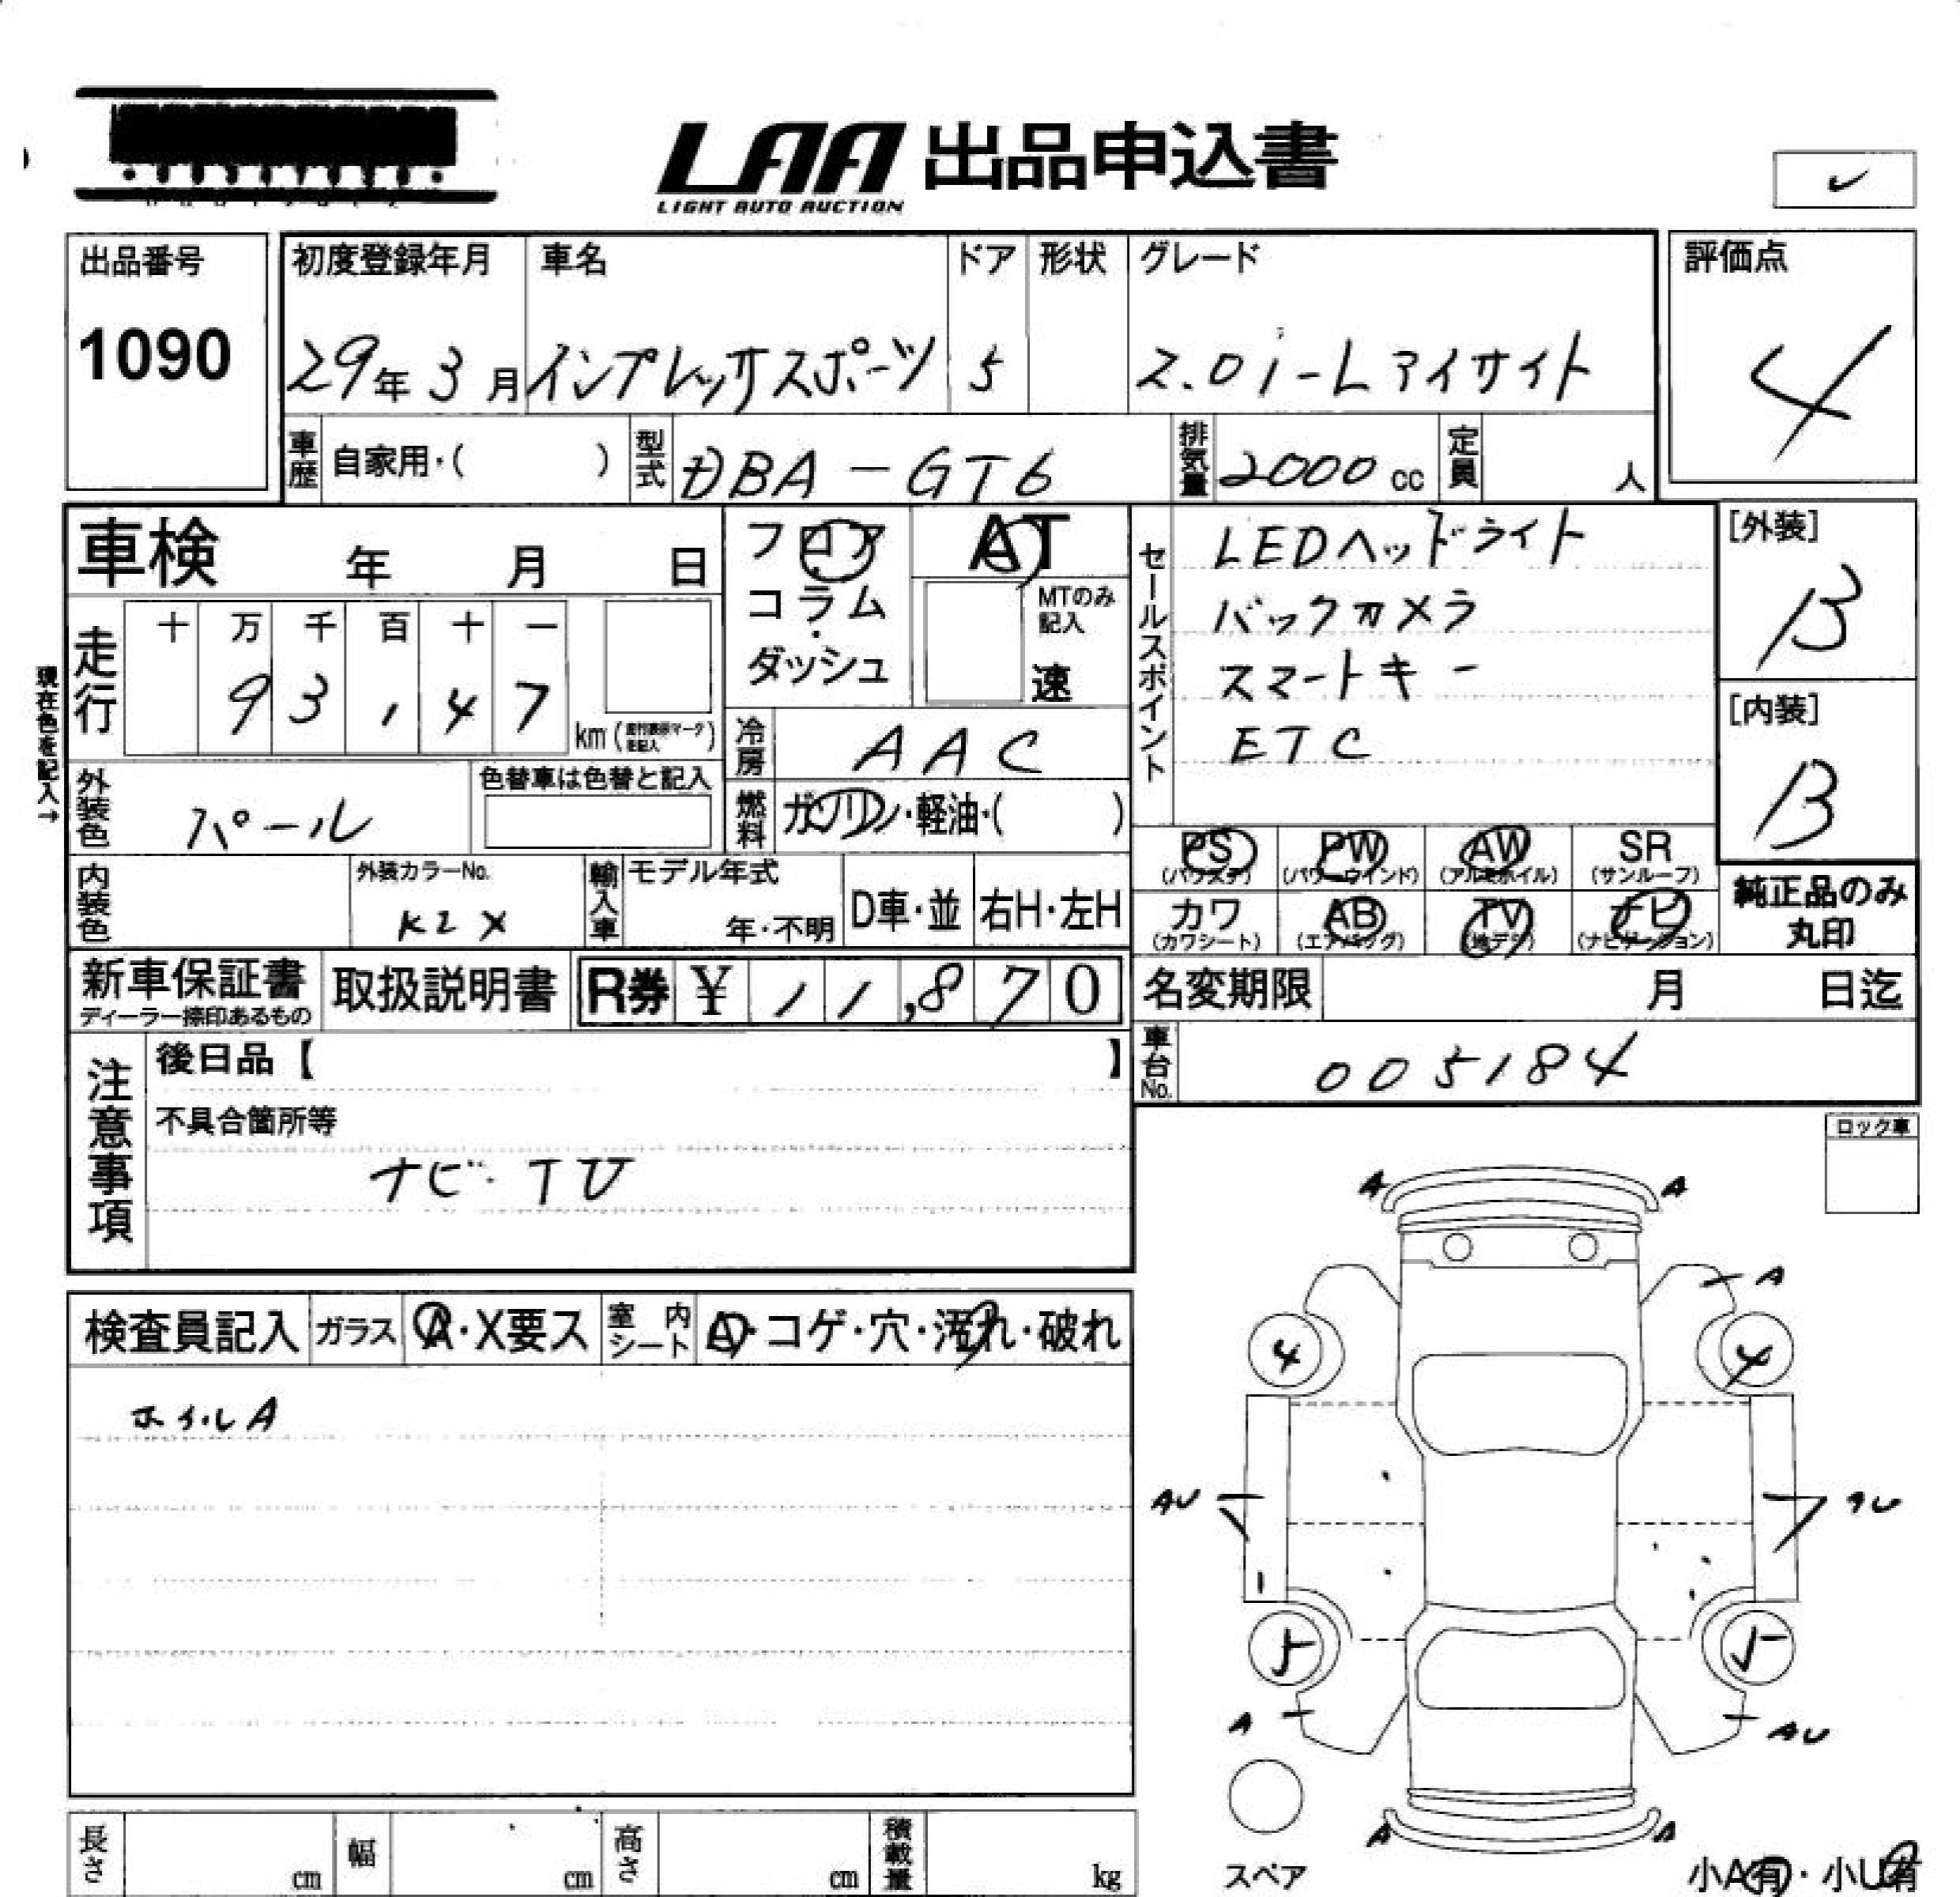 LAA 出品申込書
LIGHT AUTO AUCTION
✓
出品番号
1090
初度登録年月 車名 ドア 形状 グレード
29年 3月 インプレッサスポーツ 5 2.0i-Lアイサイト
評価点
4
車歴 自家用・( ) 型式 DBA-GT6 排気量 2000cc 定員 人
車検 年 月 日
フロア・コラム・ダッシュ
AT
MTのみ記入
速
走行 十 万 千 百 十 一
93,147
km
現在色を記入→
冷房 AAC
外装色 パール
色替車は色替と記入
燃料 ガソリン・軽油・( )
セールスポイント
LEDヘッドライト
バックカメラ
スマートキー
ETC
[外装]
B
[内装]
B
内装色
外装カラーNo.
K2X
輸入車 モデル年式
年・不明
D車・並 右H・左H
PS PW AW SR
(パワステ) (パワーウインド) (アルミホイル) (サンルーフ)
カワ AB TV ナビ
(カワシート) (エアバッグ) (地デジ) (ナビゲーション)
純正品のみ
丸印
新車保証書 取扱説明書 R券 ¥ 11,870
ディーラー捺印あるもの
名変期限 月 日迄
車台No. 005184
注意事項
後日品【 】
不具合箇所等
ナビ・TV
ロック車
検査員記入 ガラス A・X要ス 室内シート A・コゲ・穴・汚れ・破れ
ホイルA
A A
A
4 4
AU AU
A AU
A A
スペア
小A有・小U有
長さ cm 幅 cm 高さ cm 積載量 kg